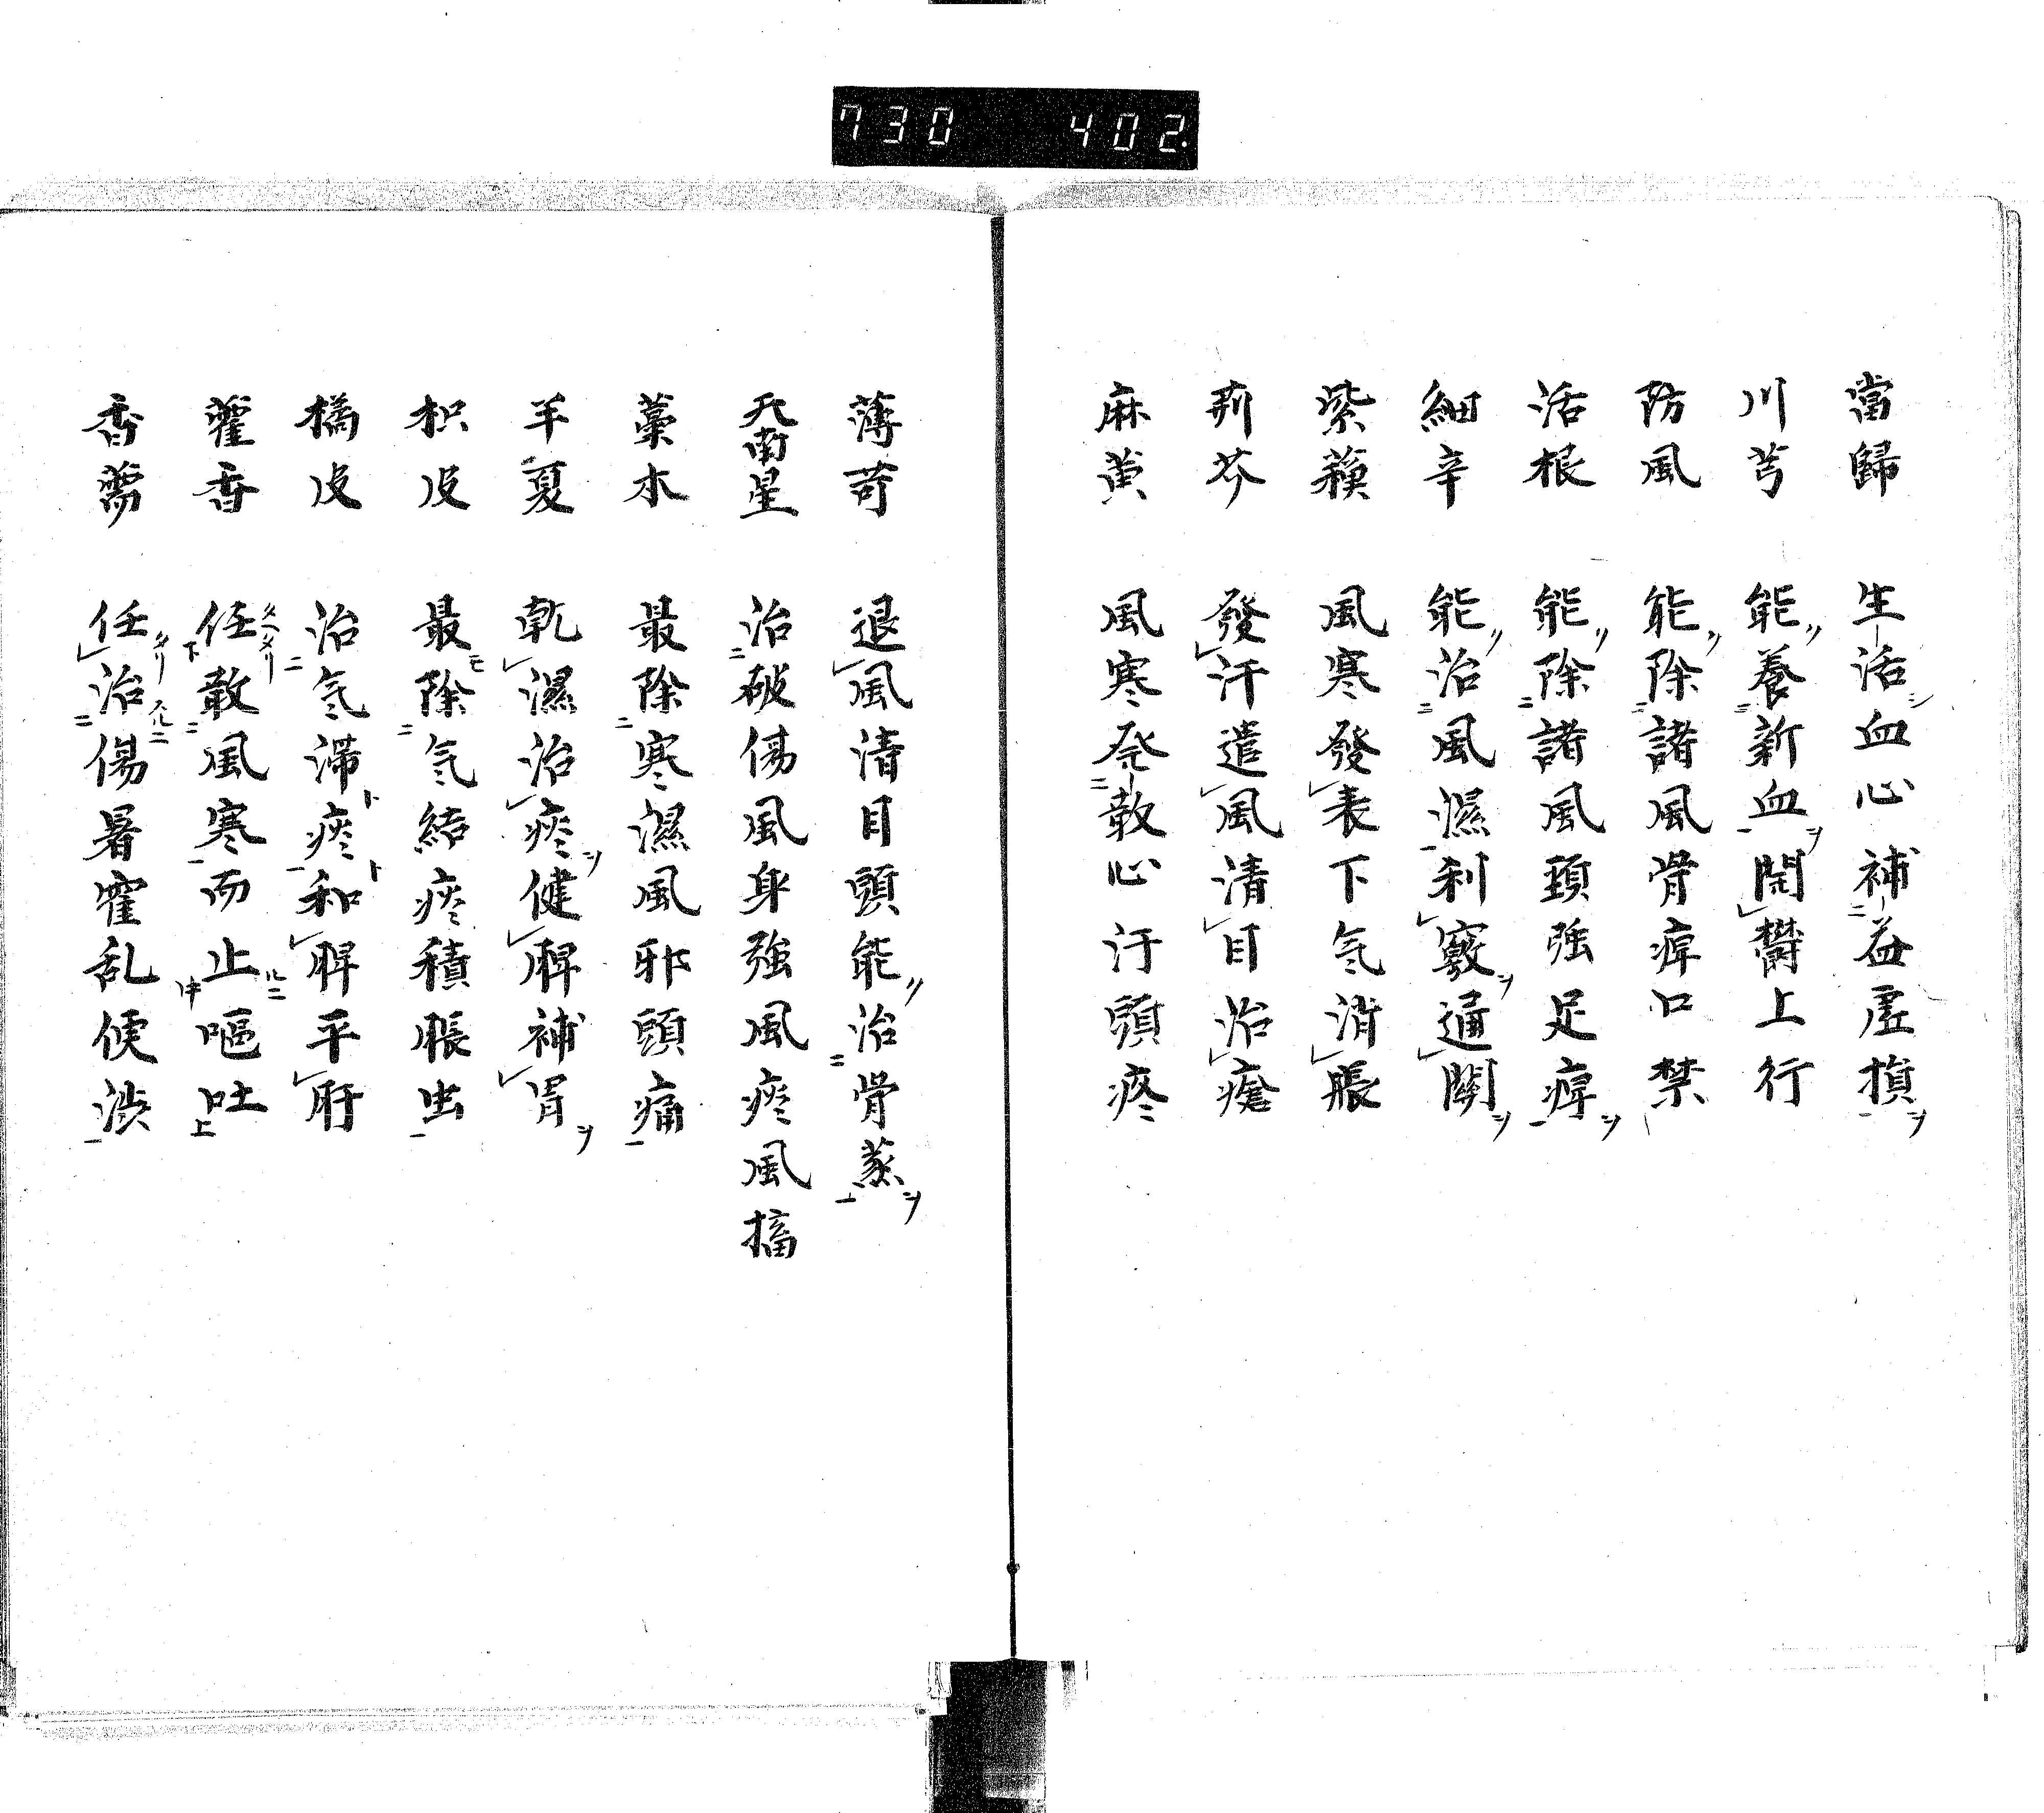 730 402.
當歸 生活血心補益虛損
川芎 能養新血開欝上行
防風 能除諸風骨痺口禁
活根 能除諸風頚强足痺
細辛 能治風濕利竅通関
紫蘓 風寒發表下气消脹
荊芥 發汗遣風清目治瘡
麻黄 風寒発散心汗頭疼
薄荷 退風清目頭能治骨蒸
天南星 治破傷風身強風痰風搐
藁本 最除寒濕風邪頭痛
半夏 乾濕治痰健脾補胃
枳皮 最除气結痰積脹出
橘皮 治气滞痰和脾平肝
藿香 任散風寒而止嘔吐
香薷 任治傷暑霍乱便渋